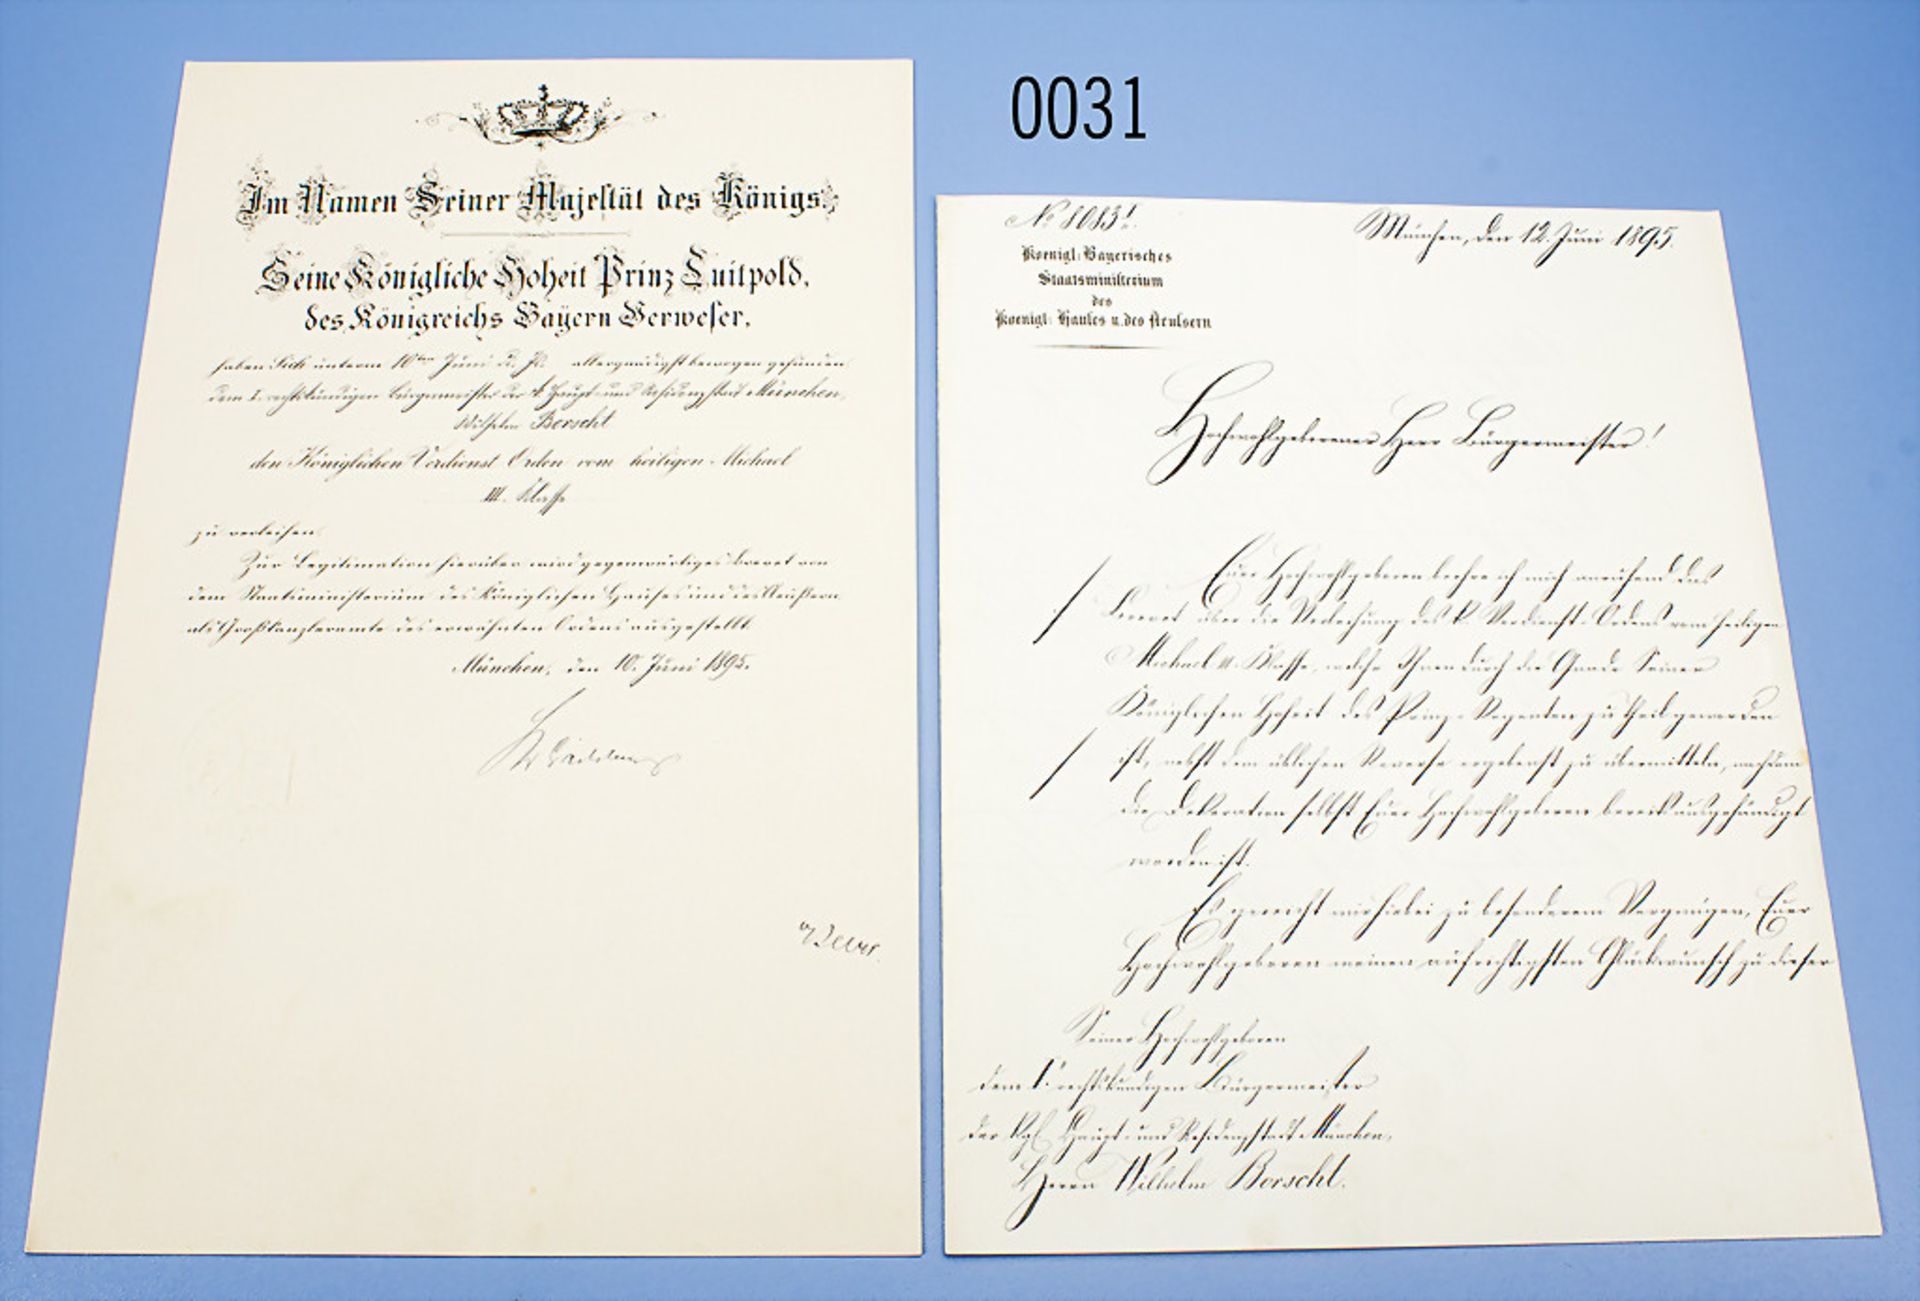 0031
Im Namen Seiner Majestät des Königs.
Seine Königliche Hoheit Prinz Luitpold,
des Königreichs Bayern Verweser,
haben Sich unterm 10ten Juni d. Js. allergnädigst bewogen gefunden
dem I. rechtskundigen Bürgermeister der k. Haupt- und Residenzstadt München,
Wilhelm Borscht
den Königlichen Verdienst Orden vom heiligen Michael
III. Klasse
zu verleihen.
Zur Legitimation hierüber wird gegenwärtiges Decret von
dem Staatsministerium des Königlichen Hauses und des Aeußern
als Großkanzleramte des erwähnten Ordens ausgestellt.
München, den 10. Juni 1895.
No 8083
München, den 12. Juni 1895.
Koenigl: Bayerisches
Staatsministerium
des
Koenigl: Hauses u. des Aeussern
Hochwohlgeborener Herr Bürgermeister!
Euer Hochwohlgeboren beehre ich mich anruhend das
Decret über die Verleihung des k. Verdienst-Ordens vom heiligen
Michael III. Klasse, welche Ihnen durch die Gnade Seiner
Königlichen Hoheit des Prinz-Regenten zu theil geworden
ist, nebst dem üblichen Reverse ergebenst zu übermitteln, nachdem
die Dekoration selbst Euer Hochwohlgeboren bereits ausgehändigt
worden ist.
Es gereicht mir hiebei zu besonderem Vergnügen, Euer
Hochwohlgeboren meinen aufrichtigsten Glückwunsch zu dieser
Seiner Hochwohlgeboren
dem I. rechtskundigen Bürgermeister
der Kgl. Haupt- und Residenzstadt München,
Herrn Wilhelm Borscht.